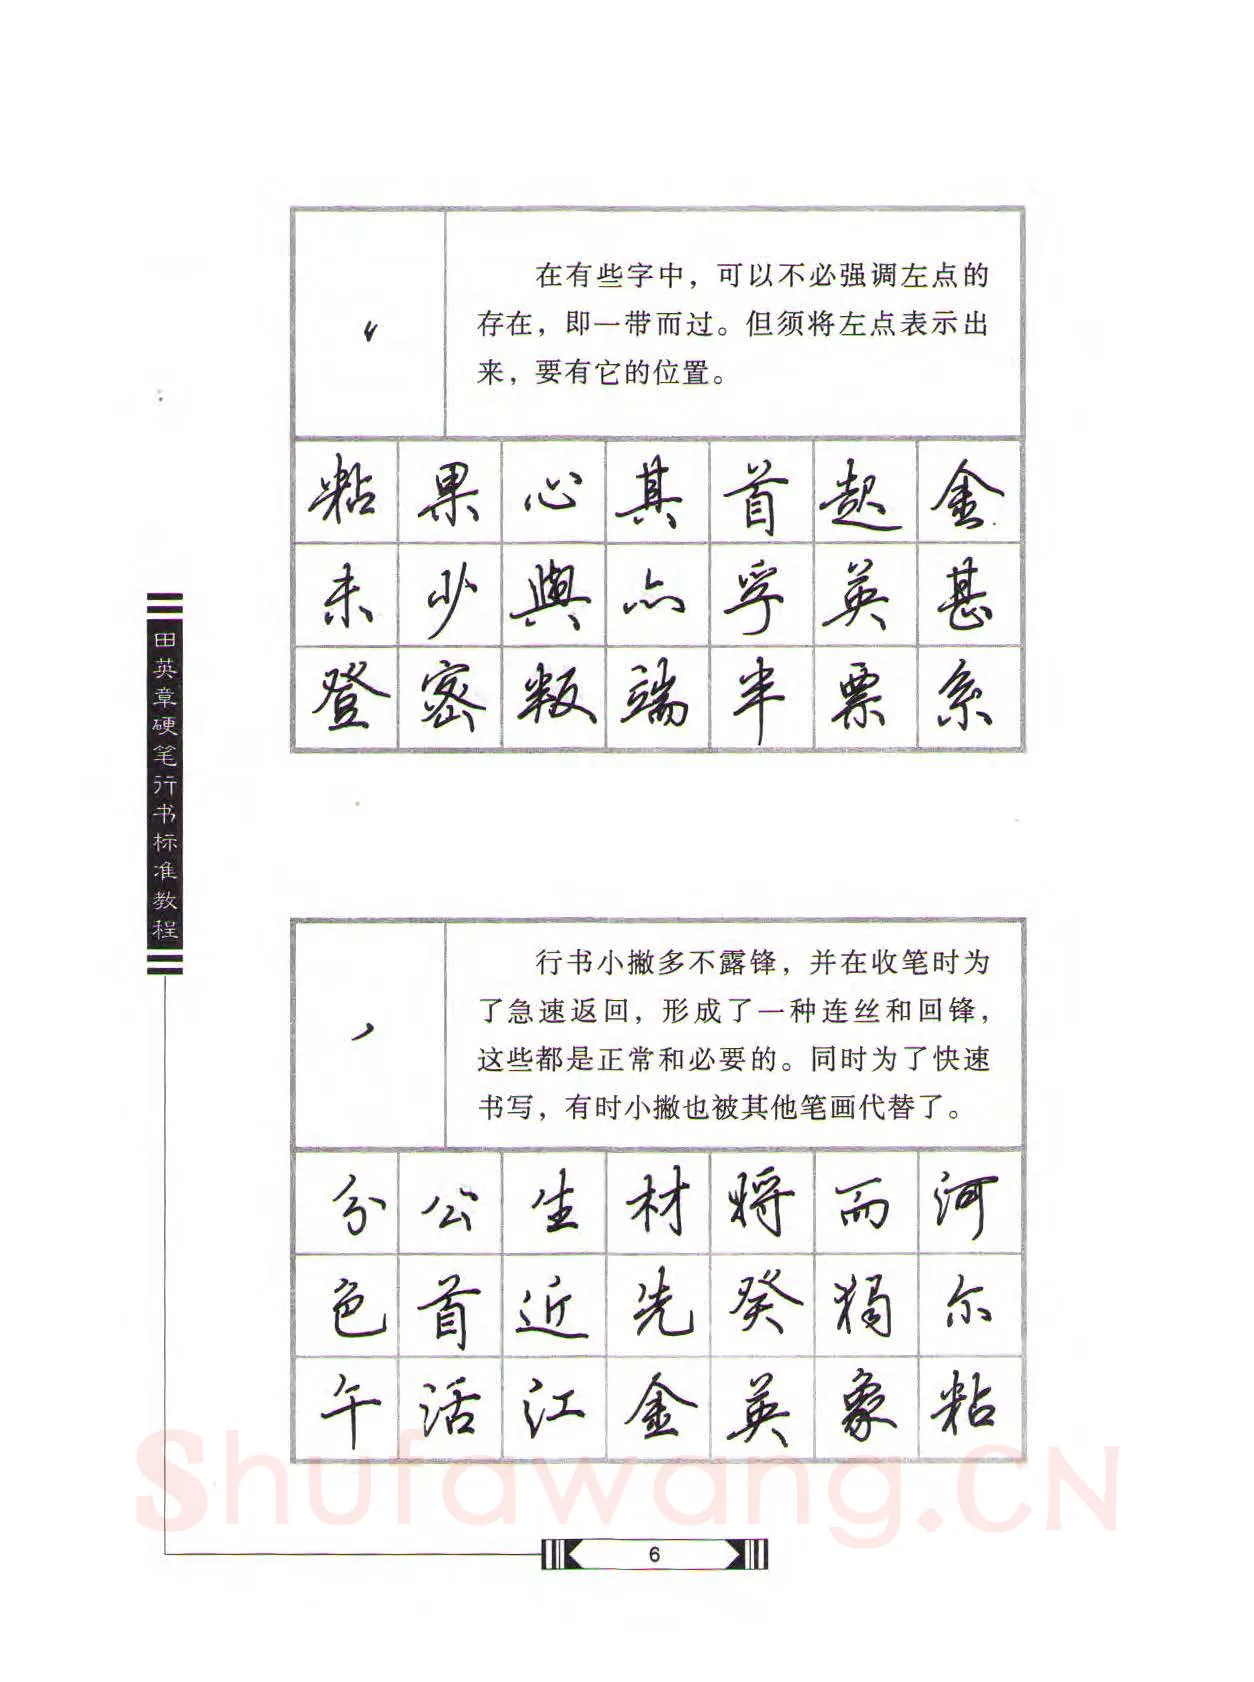 在有些字中，可以不必强调左点的
存在，即一带而过。但须将左点表示出
来，要有它的位置。
粘 果 心 其 首 金
未 少 與 孚 英 甚
登 密 粄 端 半 票 系
田英章硬笔行书标准教程
行书小撇多不露锋，并在收笔时为
了急速返回，形成了一种连丝和回锋，
这些都是正常和必要的。同时为了快速
书写，有时小撇也被其他笔画代替了。
分 公 生 材 将 而 河
色 首 近 先 癸 尔
午 活 江 金 英 象 粘
Shufawang.CN
6